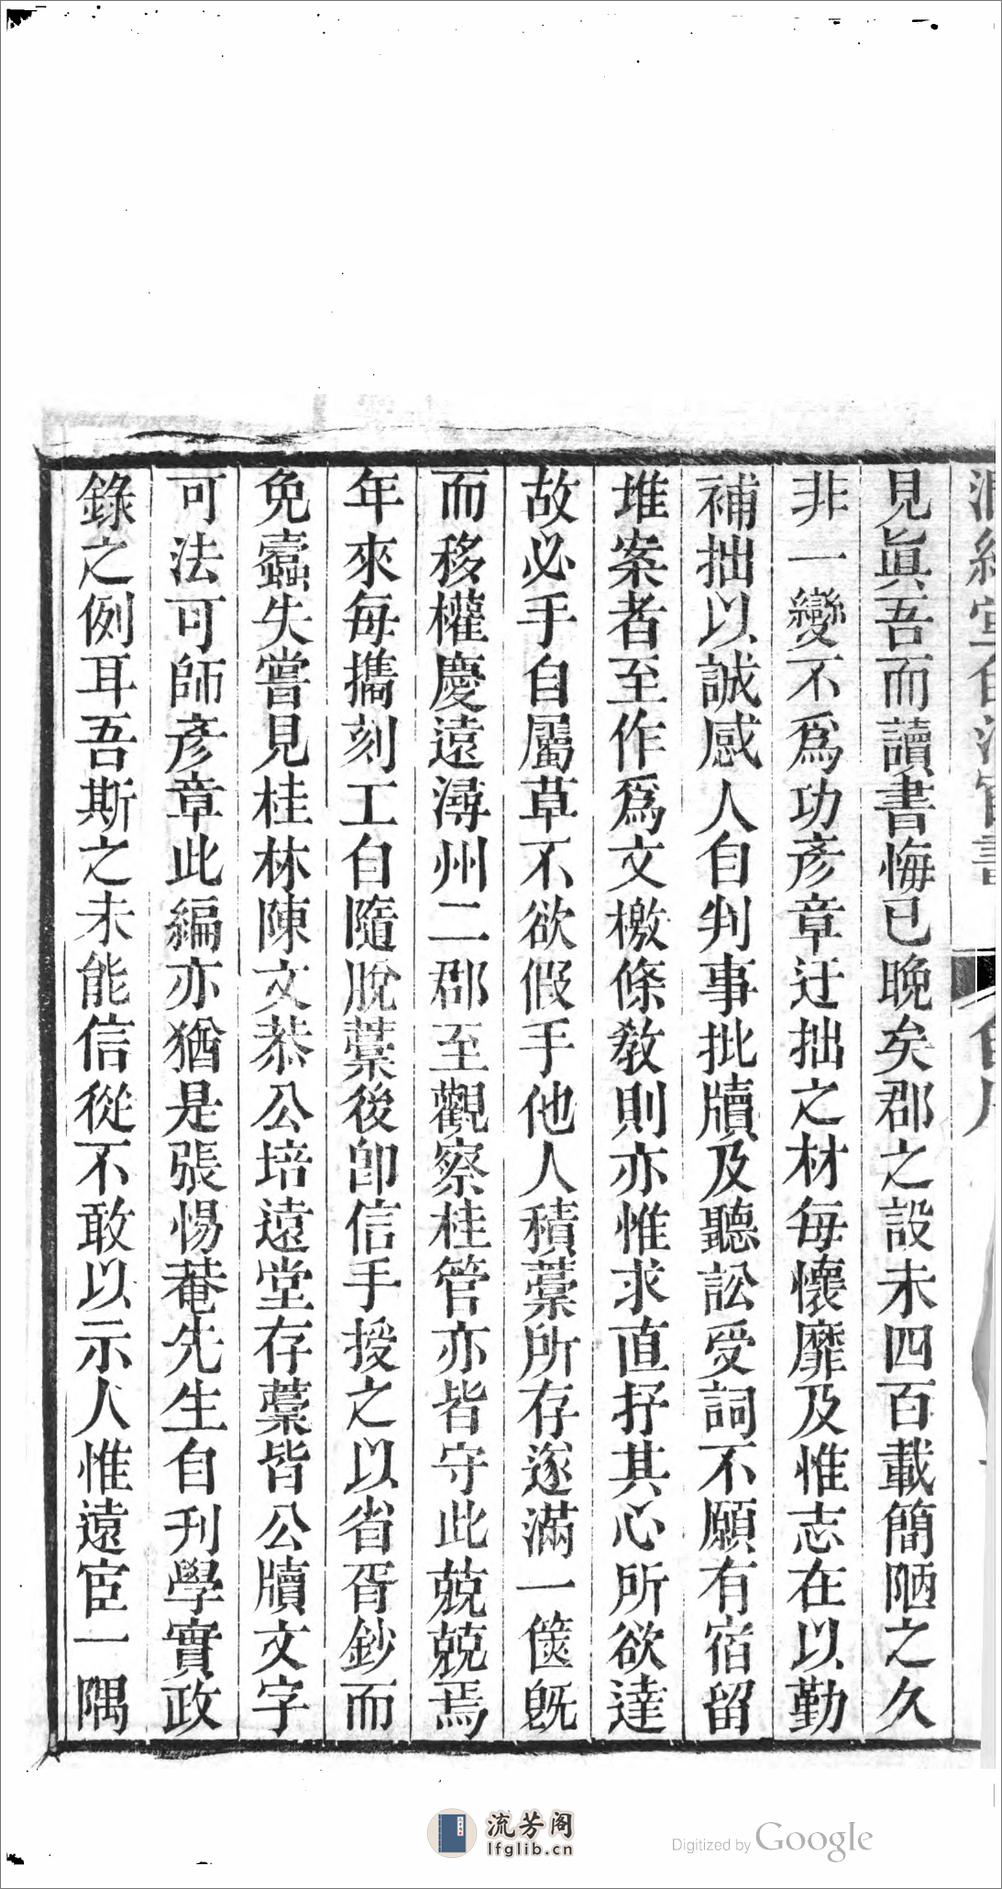 見眞吾而讀書悔已晚矣郡之設未四百載簡陋之久
非一變不爲功彥章迂拙之材每懷靡及惟志在以勤
補拙以誠感人自判事批牘及聽訟受詞不願有宿留
堆案者至作爲文檄條教則亦惟求直抒其心所欲達
故必手自屬草不欲假手他人積藁所存遂滿一篋旣
而移權慶遠潯州二郡至觀察桂管亦皆守此兢兢焉
年來每攜刻工自隨脫藁後卽信手授之以省胥鈔而
免蠹失嘗見桂林陳文恭公培遠堂存藁皆公牘文字
可法可師彥章此編亦猶是張惕菴先生自刊學實政
錄之例耳吾斯之未能信從不敢以示人惟遠宦一隅
流芳阁
lfglib.cn
Digitized by Google